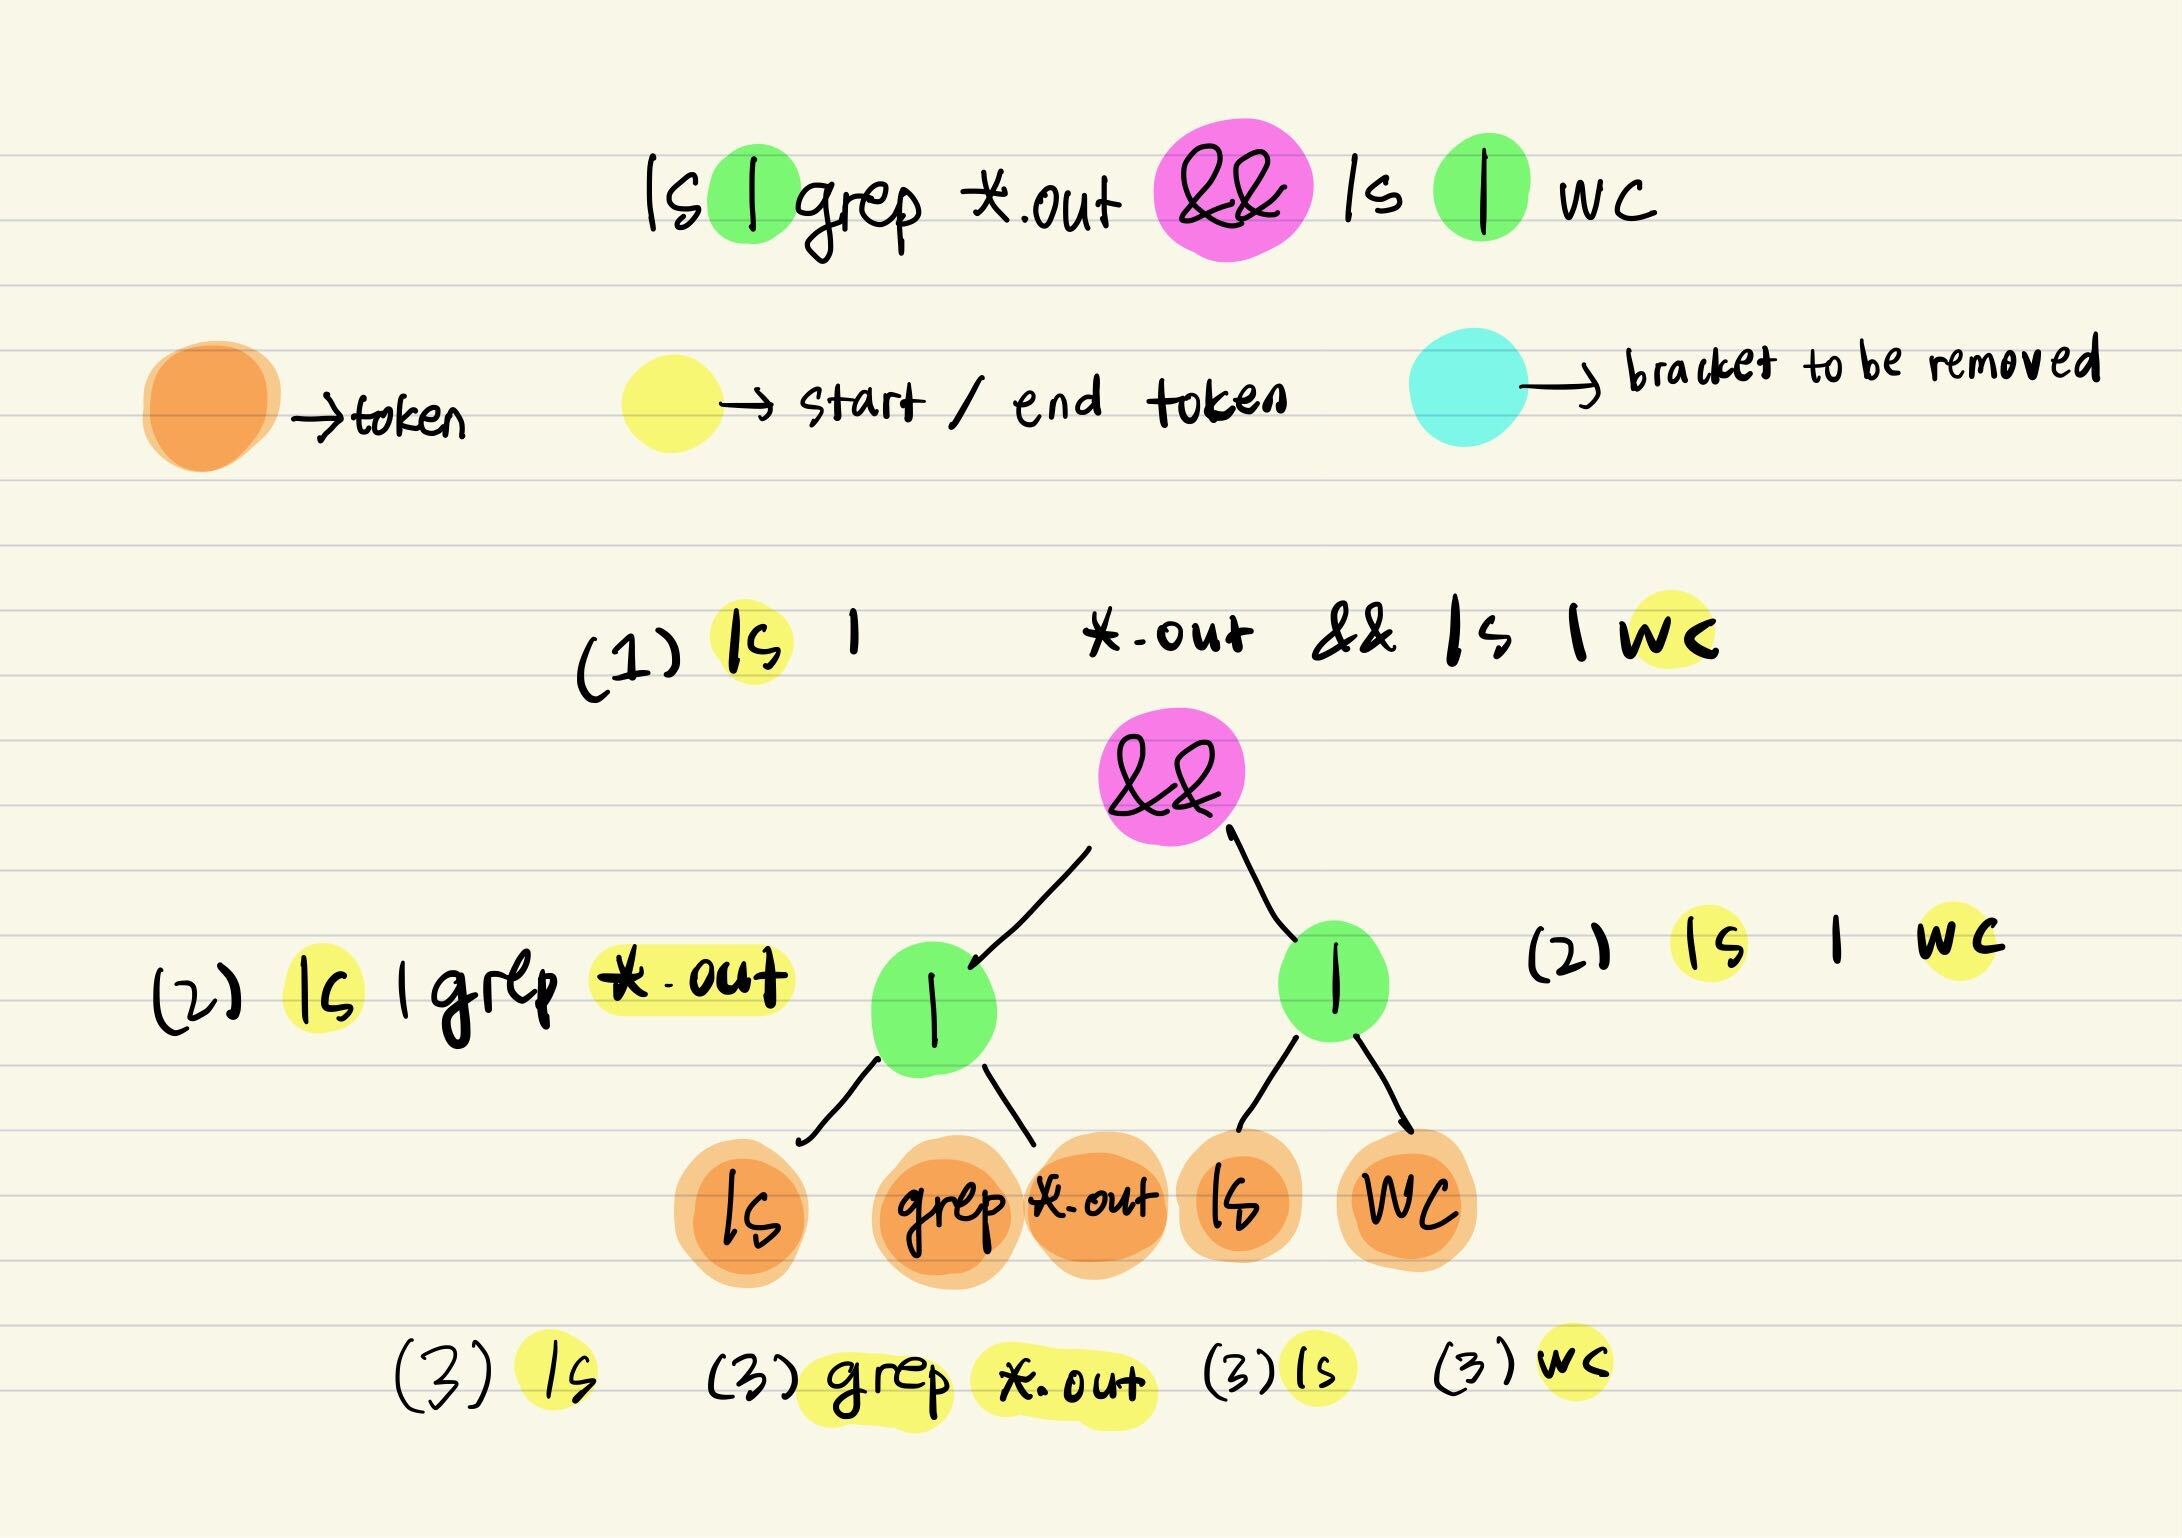 ls | grep *.out && ls | wc
→ token
→ start / end token
→ bracket to be removed
(1) ls | *.out && ls | wc
&&
(2) ls | grep *.out
|
|
(2) ls | wc
ls
grep *.out
ls
wc
(3) ls
(3) grep *.out
(3) ls
(3) wc